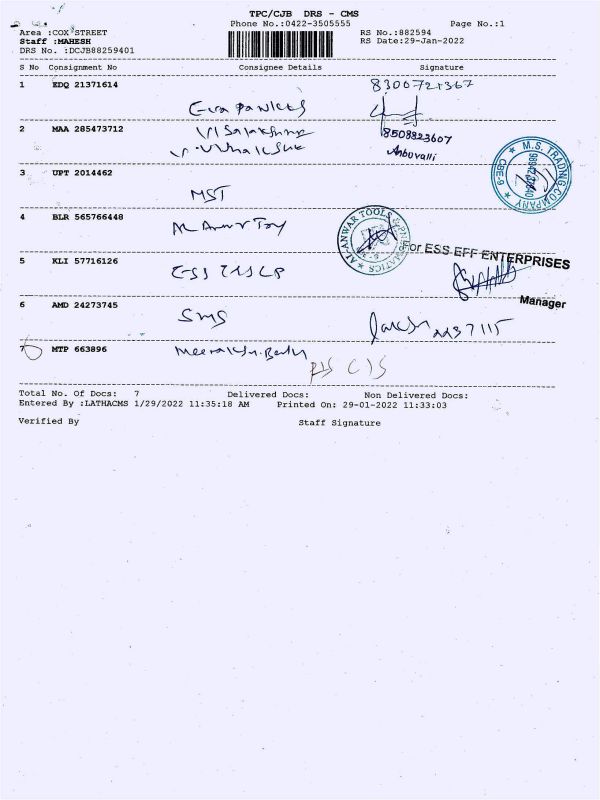 TPC/CJB DRS - CMS
Phone No.:0422-3505555
Page No.:1
Area :COX STREET
Staff :MAHESH
DRS No. :DCJB88259401
RS No.:882594
RS Date:29-Jan-2022
S No Consignment No Consignee Details Signature
1 EDQ 21371614
8300721367
2 MAA 285473712
8508823607
Anbuvalli
3 UPT 2014462
MST
M.S. TRADING COMPANY
CBE-9
4 BLR 565766448
AL-ANWAR TOOLS & PNEUMATICS
For ESS EFF ENTERPRISES
5 KLI 57716126
Manager
6 AMD 24273745
SMS
7 MTP 663896
Total No. Of Docs: 7 Delivered Docs: Non Delivered Docs:
Entered By :LATHACMS 1/29/2022 11:35:18 AM Printed On: 29-01-2022 11:33:03
Verified By Staff Signature